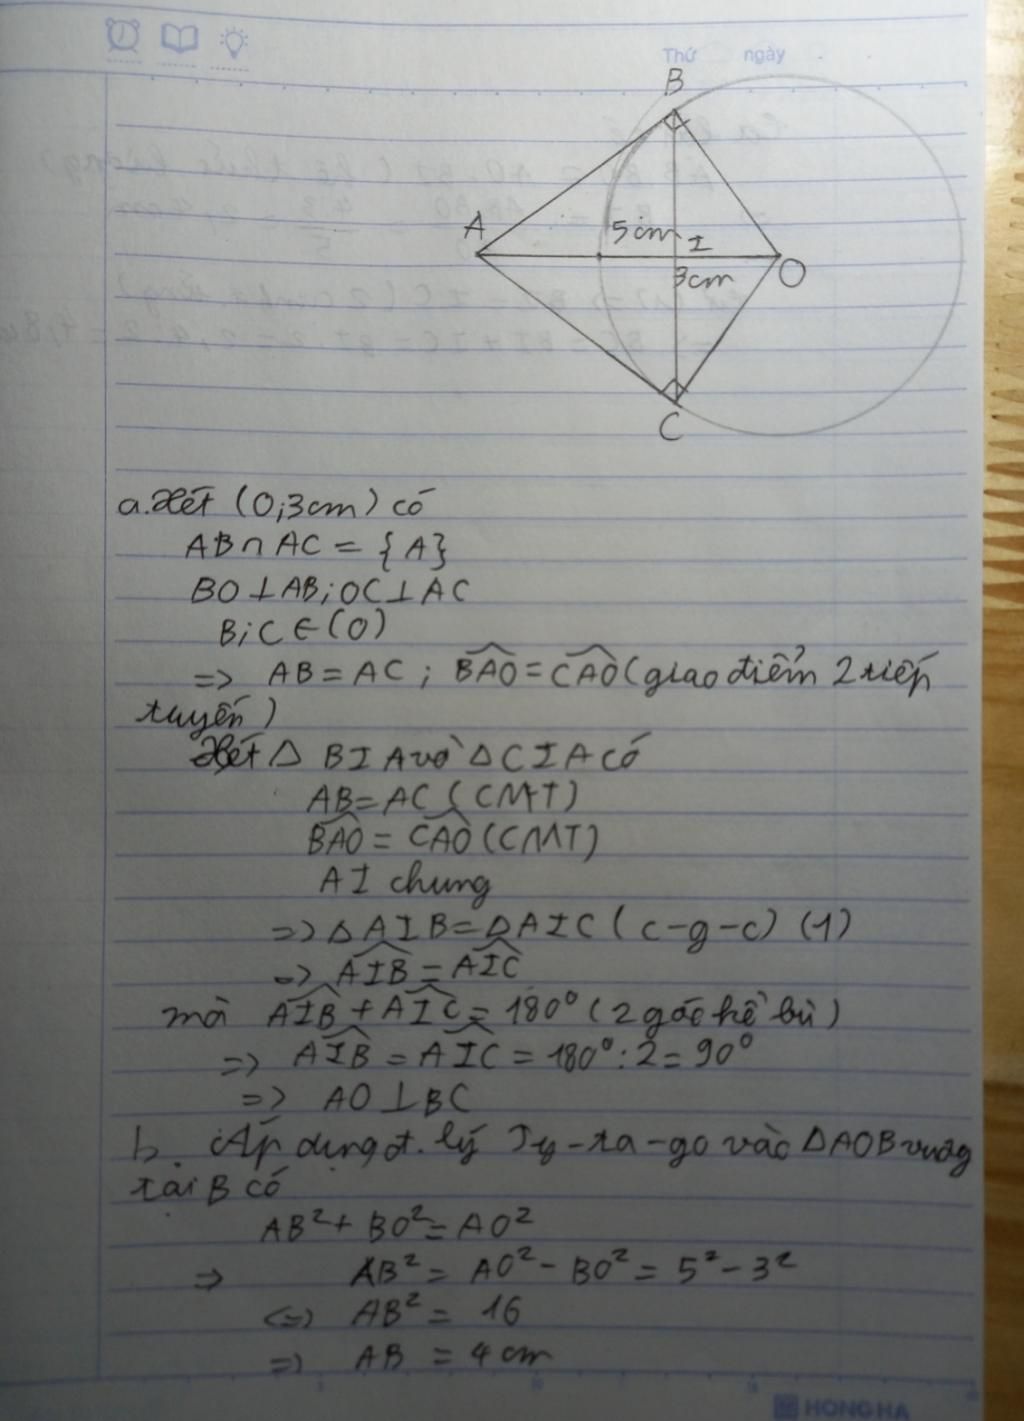 Thứ ngày
B
A
5cm I
3cm O
C
a. Xét (O;3cm) có
AB ∩ AC = {A}
BO ⊥ AB; OC ⊥ AC
B; C ∈ (O)
=> AB = AC ; \widehat{BAO} = \widehat{CAO} (giao điểm 2 tiếp
tuyến)
Xét △ BIA và △CIA có
AB = AC (CMT)
\widehat{BAO} = \widehat{CAO} (CMT)
AI chung
=> △AIB = △AIC (c-g-c) (1)
=> \widehat{AIB} = \widehat{AIC}
mà \widehat{AIB} + \widehat{AIC} = 180° (2 góc kề bù)
=> \widehat{AIB} = \widehat{AIC} = 180° : 2 = 90°
=> AO ⊥ BC
b. Áp dụng đ. lý Ty-ta-go vào △AOB vuông
tại B có
AB² + BO² = AO²
=> AB² = AO² - BO² = 5² - 3²
<=> AB² = 16
=> AB = 4 cm
HONG HA